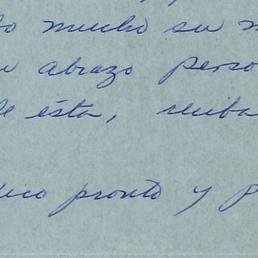 mucho su
abrazo perso
de ésta, reciba
pronto y p